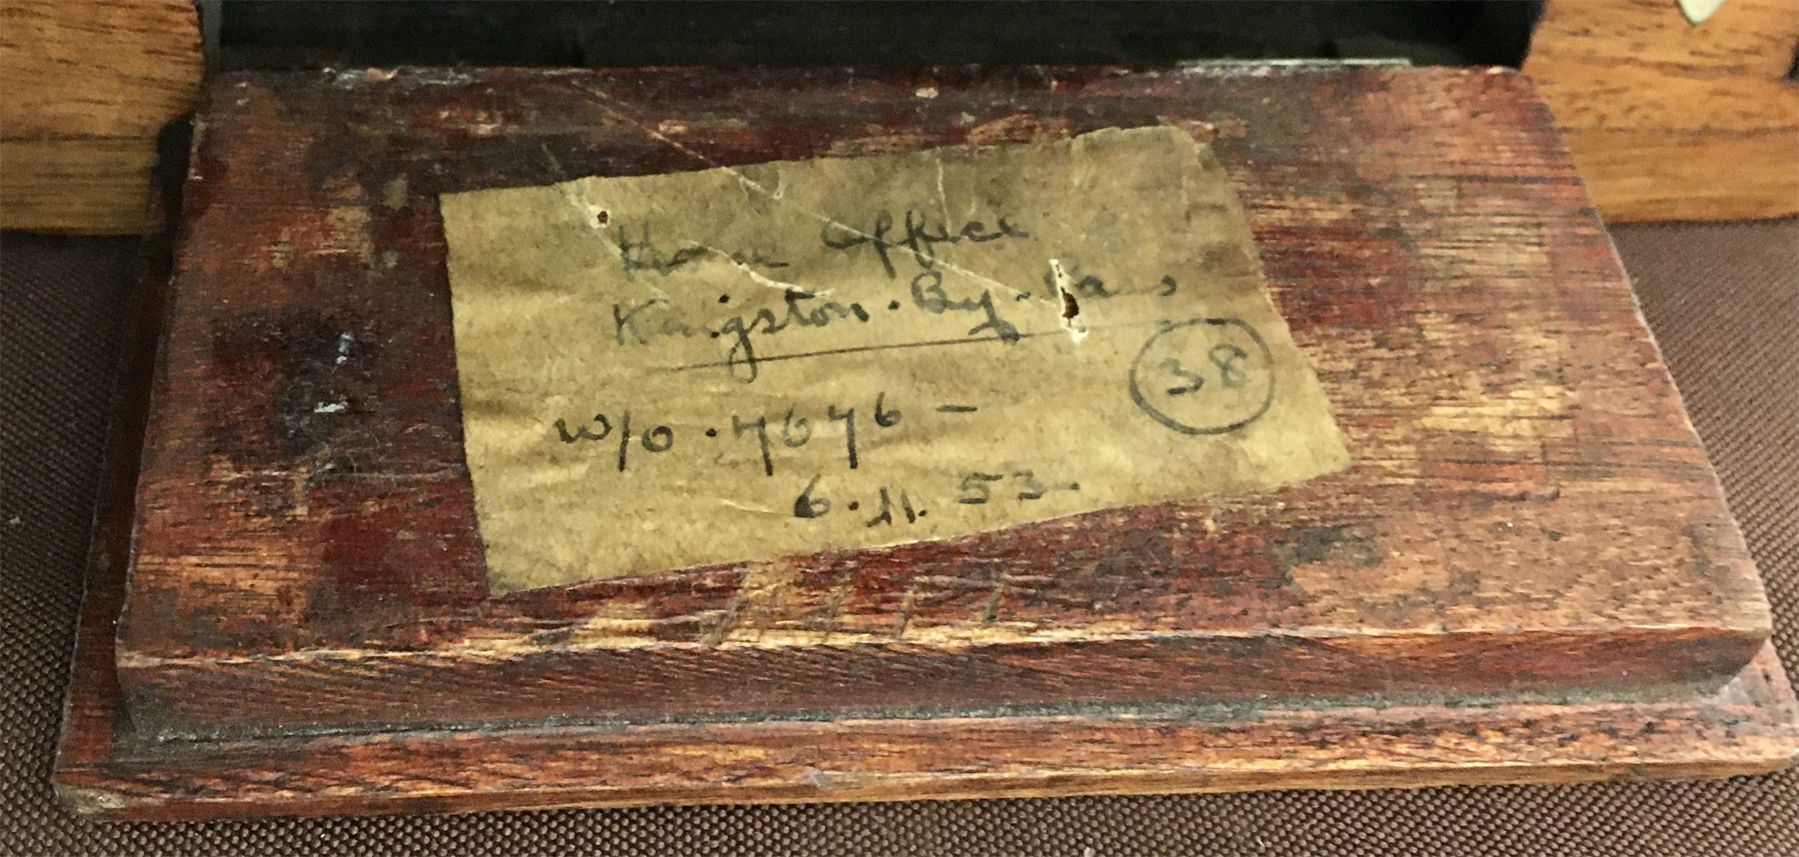 Home Office
Kingston. By. Pass
38
W/O. 7676 -
6. 11. 53 -